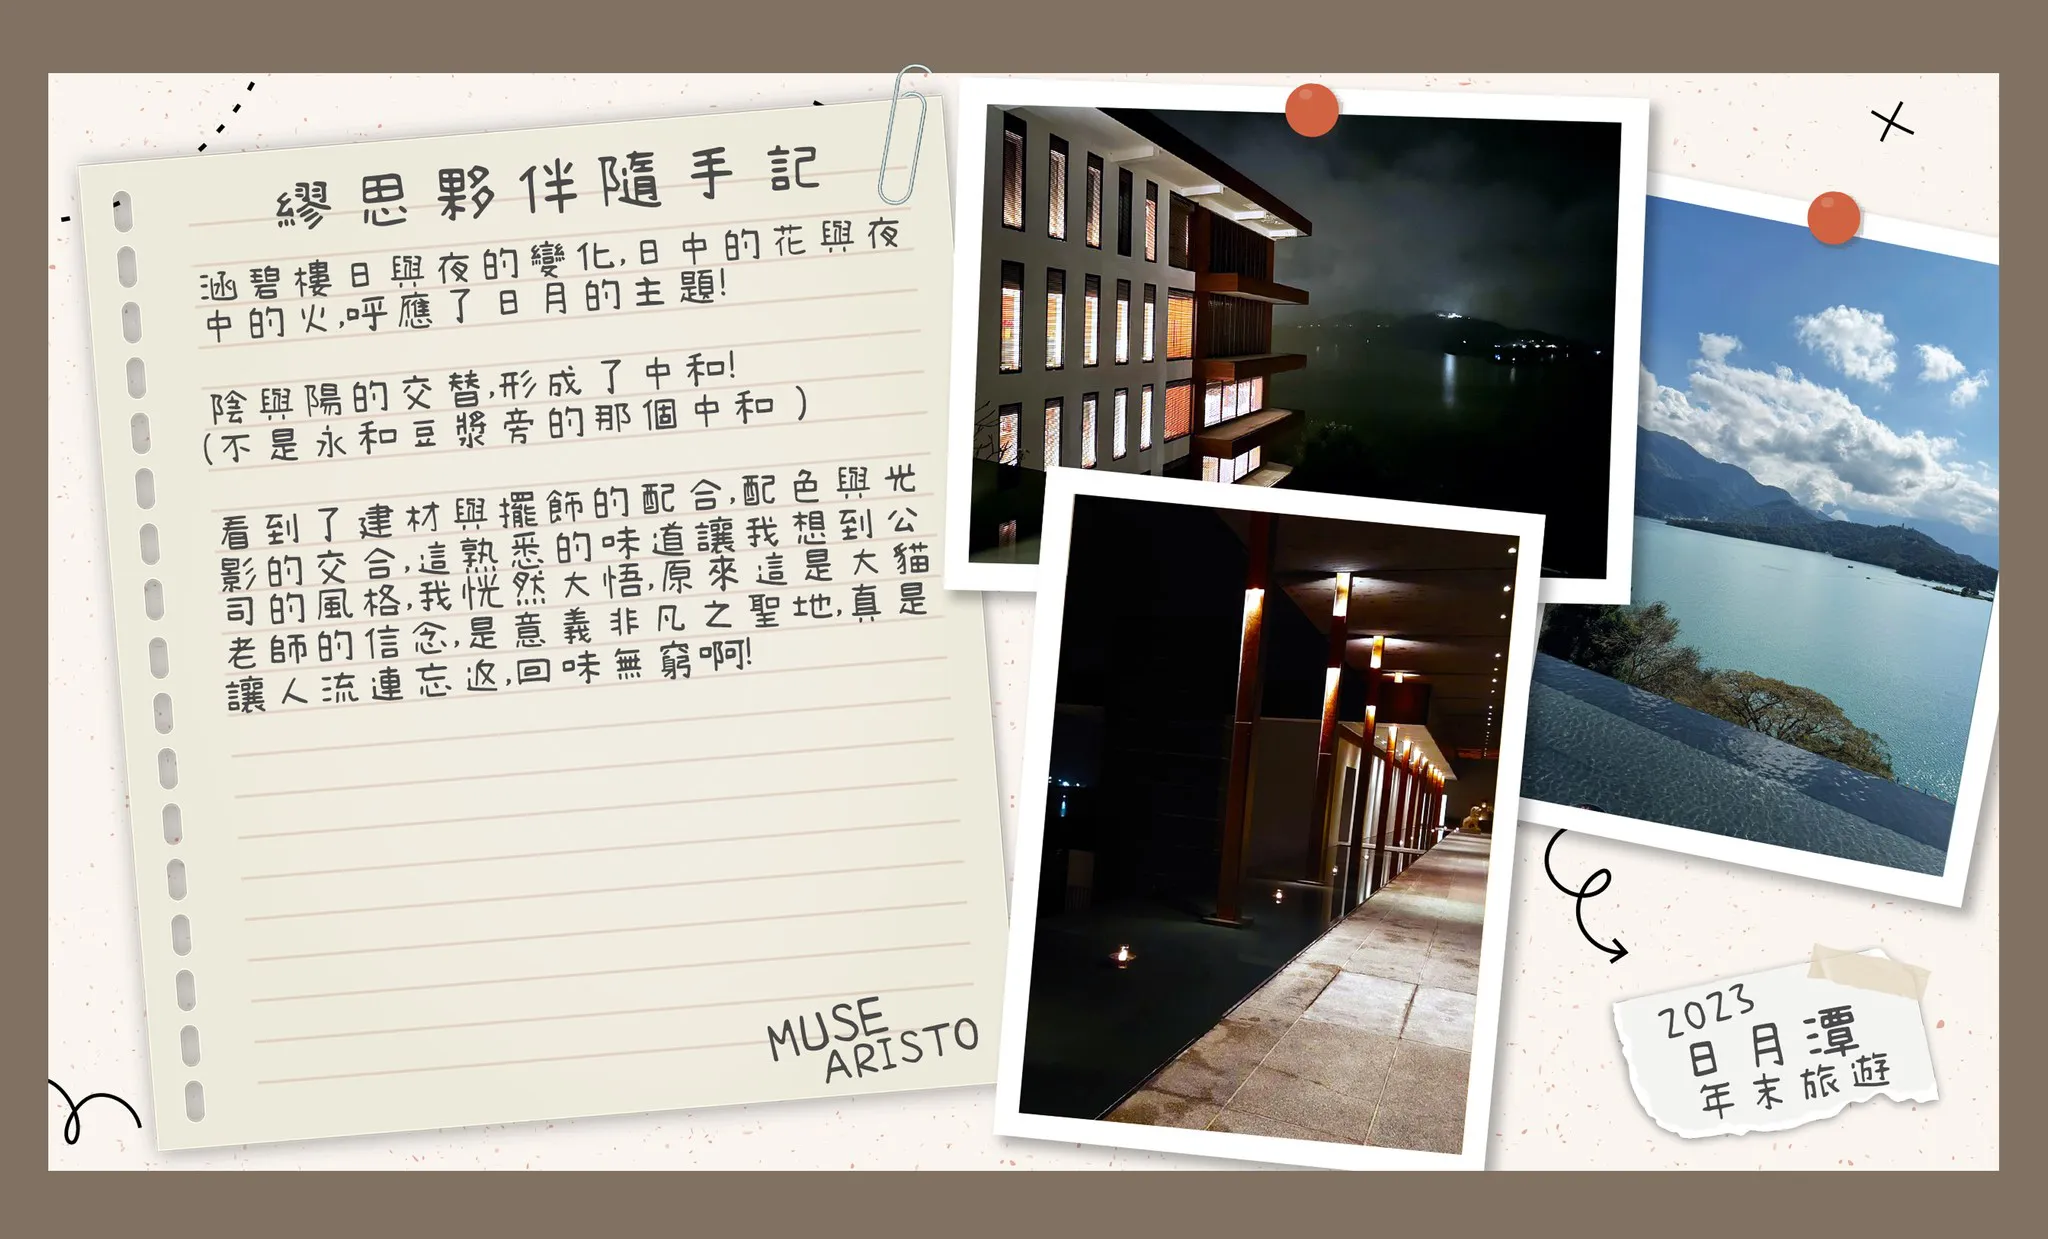 繆思夥伴隨手記
涵碧樓日與夜的變化,日中的花與夜
中的火,呼應了日月的主題!
陰與陽的交替,形成了中和!
(不是永和豆漿旁的那個中和)
看到了建材與擺飾的配合,配色與光
影的交合,這熟悉的味道讓我想到公
司的風格,我恍然大悟,原來這是大貓
老師的信念,是意義非凡之聖地,真是
讓人流連忘返,回味無窮啊!
MUSE
ARISTO
2023
日月潭
年末旅遊